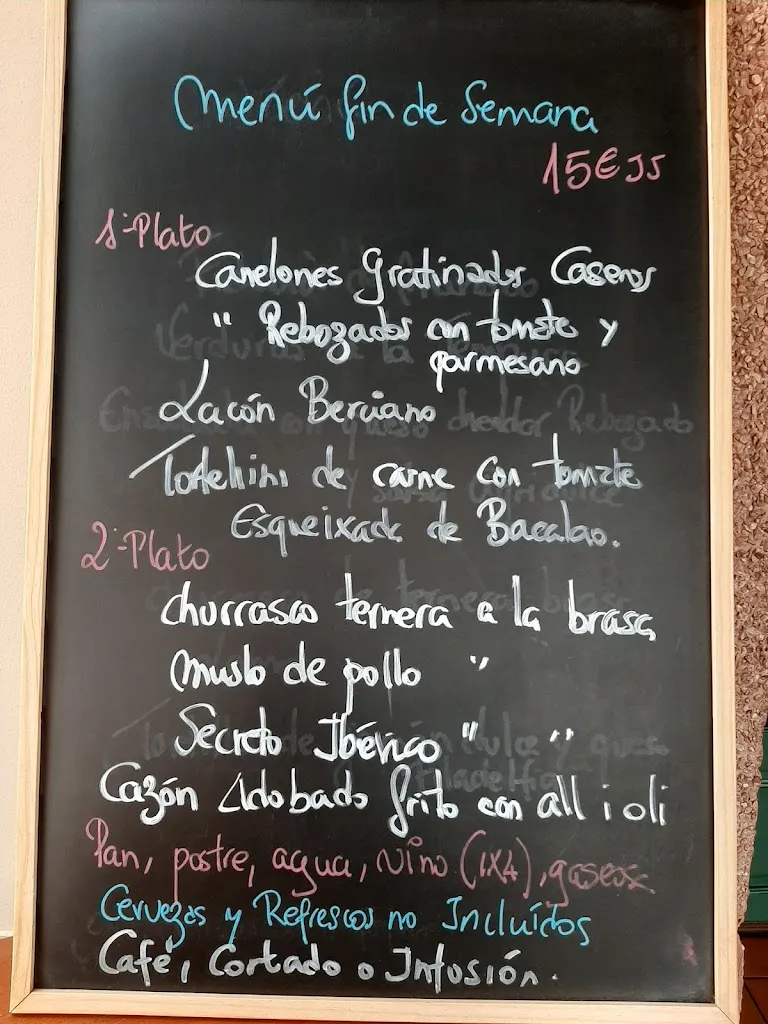 Menú fin de Semana
15€
1º Plato
Canelones Gratinados Caseros
" Rebozados con tomate y
parmesano
Lacón Berciano
Tortellini de carne con tomate
Esqueixada de Bacalao.
2º Plato
Churrasco ternera a la brasa
Muslo de pollo "
Secreto Ibérico " "
Cazón Adobado frito con all i oli
Pan, postre, agua, vino (1x4), gaseosa
Cervezas y Refrescos no Incluídos
Café, Cortado o Infusión.